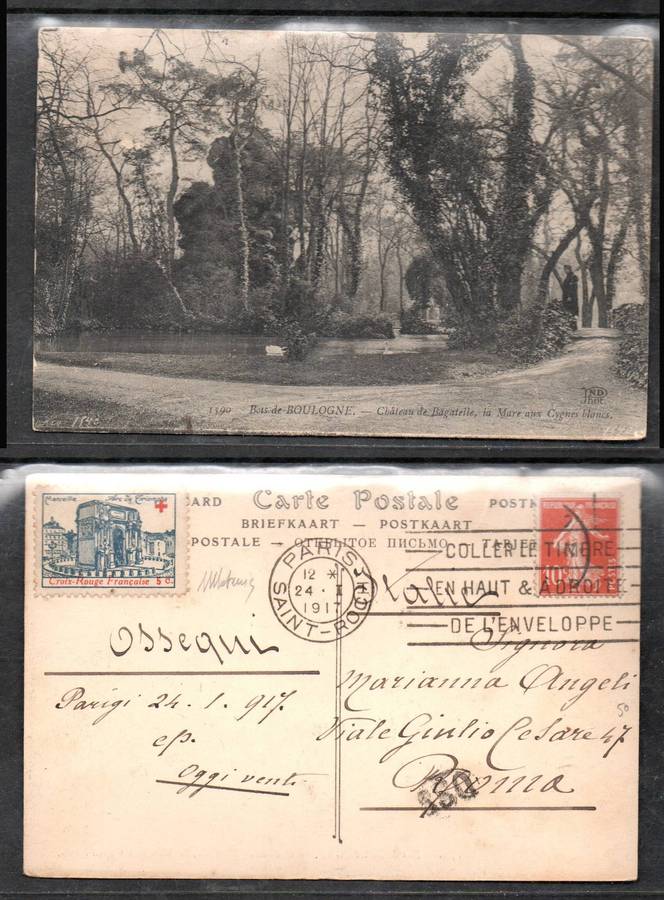 1590 Bois de BOULOGNE. — Château de Bagatelle, la Mare aux Cygnes blancs.
ND
Phot.
Marseille Arc de Triomphe
Croix-Rouge Française 5 c.
CARD Carte Postale POSTK
BRIEFKAART — POSTKAART
POSTALE — ОТКРЫТОЕ ПИСЬМО — TARJE
PARIS
12
24 · I
1917
SAINT-ROCH
COLLER LE TIMBRE
EN HAUT & A DROITE
DE L'ENVELOPPE
10
Italie
Ossequi
Parigi 24. 1. 917.
Oggi vento
Signora
Marianna Angeli
Viale Giulio Cesare 47
Roma
50